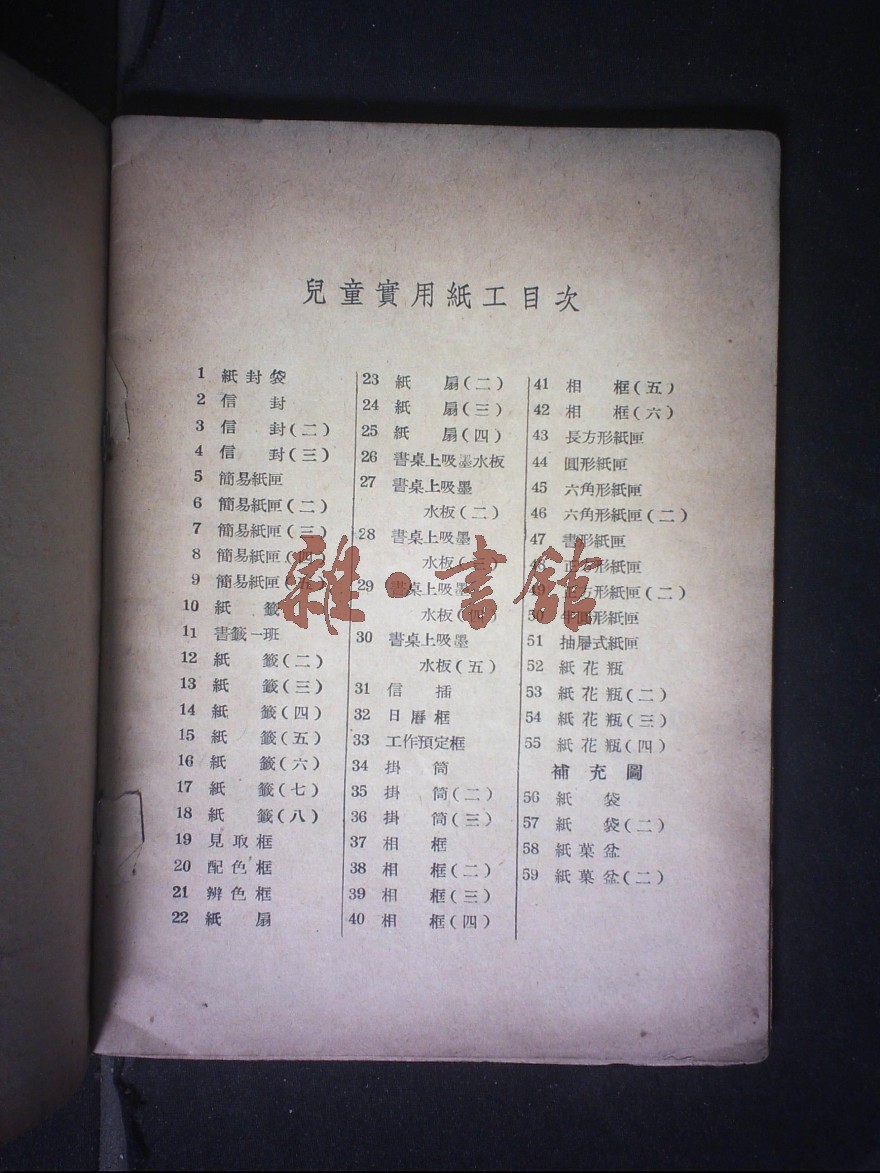 兒童實用紙工目次
1 紙封袋
2 信封
3 信封(二)
4 信封(三)
5 簡易紙匣
6 簡易紙匣(二)
7 簡易紙匣(三)
8 簡易紙匣(四)
9 簡易紙匣(五)
10 紙籤
11 書籤一班
12 紙籤(二)
13 紙籤(三)
14 紙籤(四)
15 紙籤(五)
16 紙籤(六)
17 紙籤(七)
18 紙籤(八)
19 見取框
20 配色框
21 辨色框
22 紙扇
23 紙扇(二)
24 紙扇(三)
25 紙扇(四)
26 書桌上吸墨水板
27 書桌上吸墨
水板(二)
28 書桌上吸墨
水板(三)
29 書桌上吸墨
水板(四)
30 書桌上吸墨
水板(五)
31 信插
32 日曆框
33 工作預定框
34 掛筒
35 掛筒(二)
36 掛筒(三)
37 相框
38 相框(二)
39 相框(三)
40 相框(四)
41 相框(五)
42 相框(六)
43 長方形紙匣
44 圓形紙匣
45 六角形紙匣
46 六角形紙匣(二)
47 書形紙匣
48 正方形紙匣
49 正方形紙匣(二)
50 半圓形紙匣
51 抽屜式紙匣
52 紙花瓶
53 紙花瓶(二)
54 紙花瓶(三)
55 紙花瓶(四)
補充圖
56 紙袋
57 紙袋(二)
58 紙菓盆
59 紙菓盆(二)
雜·書館